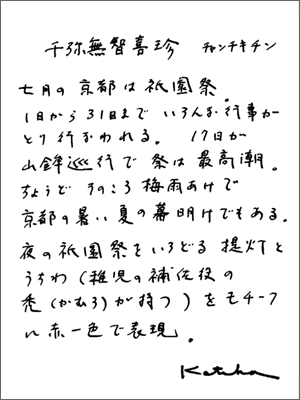 千弥無智喜珍 チャンチキチン
七月の京都は祇園祭。
1日から31日まで いろんな行事が
とり行なわれる。 17日が
山鉾巡行で 祭は最高潮。
ちょうど そのころ梅雨あけで
京都の暑い夏の幕明けでもある。
夜の祇園祭をいろどる 提灯と
うちわ(稚児の補佐役の
禿(かむろ)が持つ)をモチーフ
に赤一色で表現。